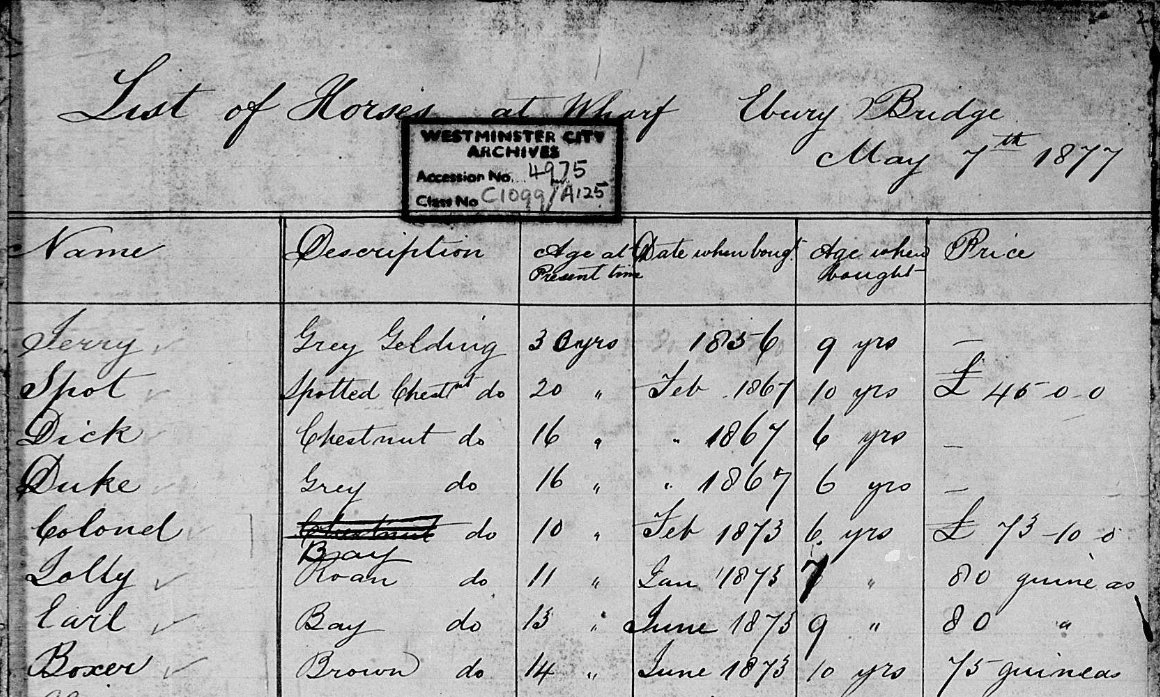 List of Horses at Wharf Ebury Bridge
May 7th 1877
WESTMINSTER CITY
ARCHIVES
Accession No. 4975
Class No C1099/A125
Name Description Age at Present time Date when bougt Age when bought Price
Jerry Grey Gelding 30 yrs 1856 9 yrs —
Spot Spotted Chestnt do 20 " Feb 1867 10 yrs £ 45-0-0
Dick Chestnut do 16 " " 1867 6 yrs —
Duke Grey do 16 " " 1867 6 yrs —
Colonel Chestnut do 10 " Feb 1873 6 yrs £ 73-10-0
Bay
Roan do 11 " Jan 1873 7 " 80 guineas
Earl Bay do 13 " June 1873 9 " 80 "
Boxer Brown do 14 " June 1873 10 yrs 75 guineas